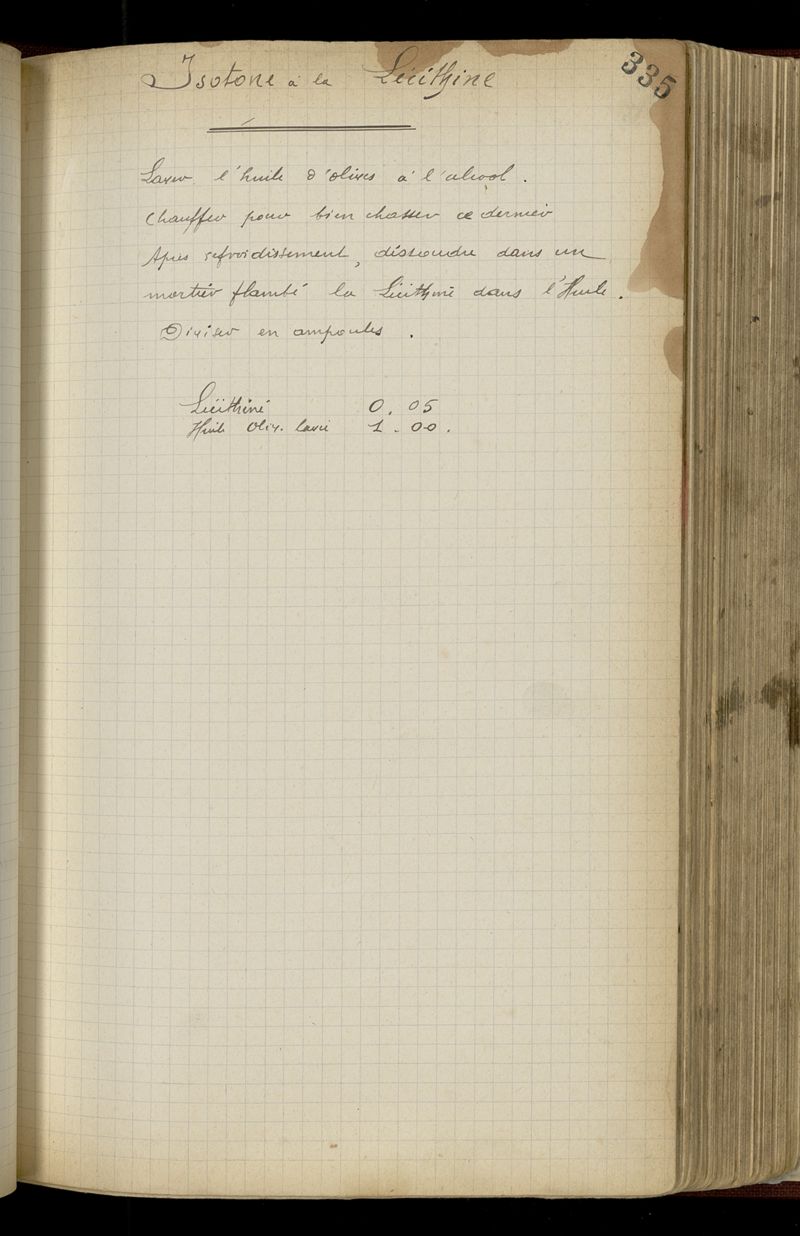 335
Isotone à la Lécithine
Laver l'huile d'olives à l'alcool.
Chauffer pour bien chasser ce dernier
Après refroidissement, dissoudre dans un
mortier flambé la Lécithine dans l'Huile.
Diviser en ampoules.
Lécithine 0.05
Huile Oliv. lavée 1.00.